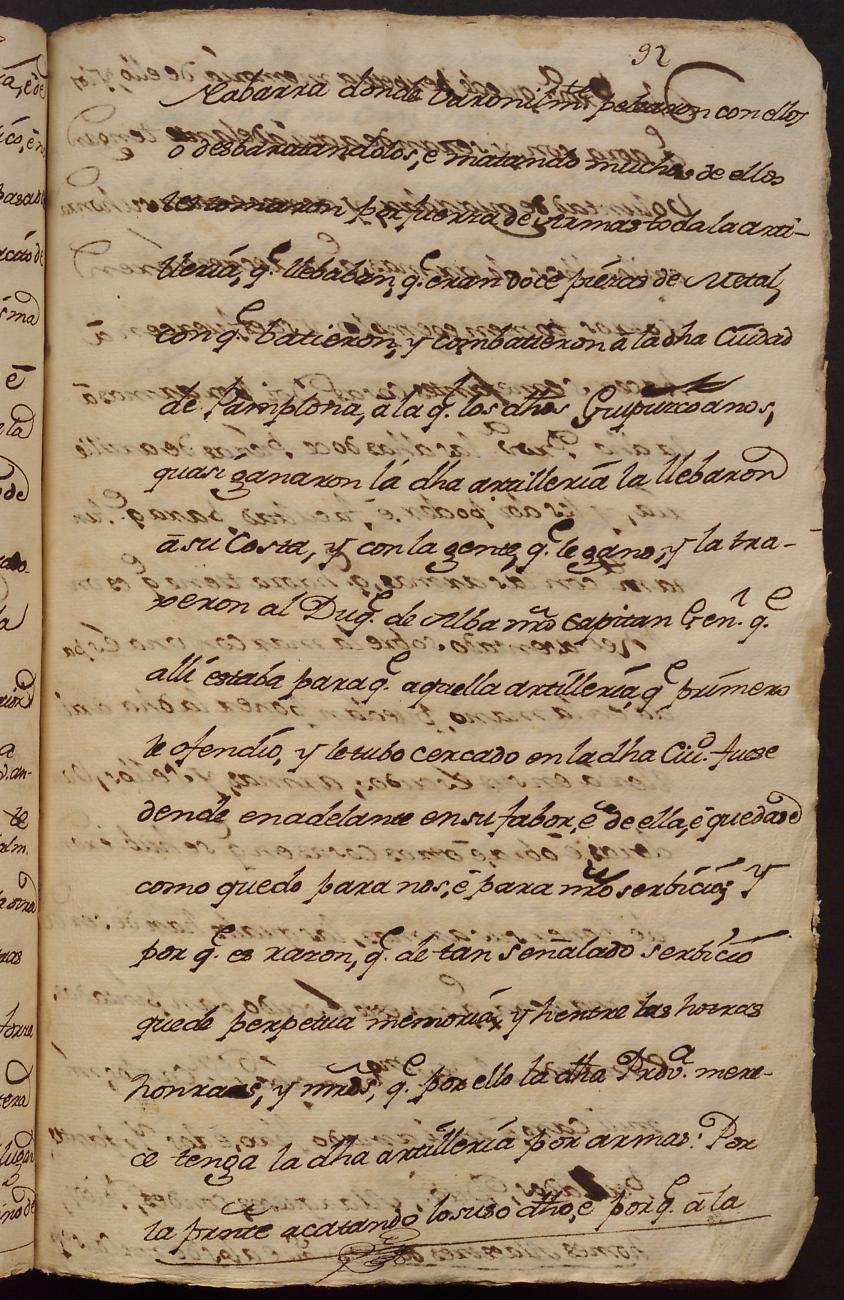 92
Nabarra donde varonilmte pelearon con ellos
o desbaratandolos, e matando muchos de ellos
les tomaron por fuerza de Armas toda la arti-
lleria, qe llebaban, qe eran doce piezas de Metal,
con qe batieron, y combatieron a la dha Ciudad
de Pamplona, a la qe los dhos Guipuzcoanos,
quasi ganaron la dha artilleria la llebaron
a su Costa, y con la gente, qe le gano, y la tra-
xeron al Duqe de Alba nro Capitan Genl qe
alli estaba para qe aquella artilleria, qe primero
le ofendio, y le tubo cercado en la dha Ciud fuese
dende en adelante en su fabor, e de ella, e quedase
como quedo para nos, e para nro serbicio; y
por qe es razon, qe de tan señalado serbicio
quede perpetua memoria, y hentre las hotras
honrras, y mrds, qe por ello la dha Prova mere-
ce tenga la dha artilleria por armas: Por
la prnte acatando lo suso dho, e porqe a la